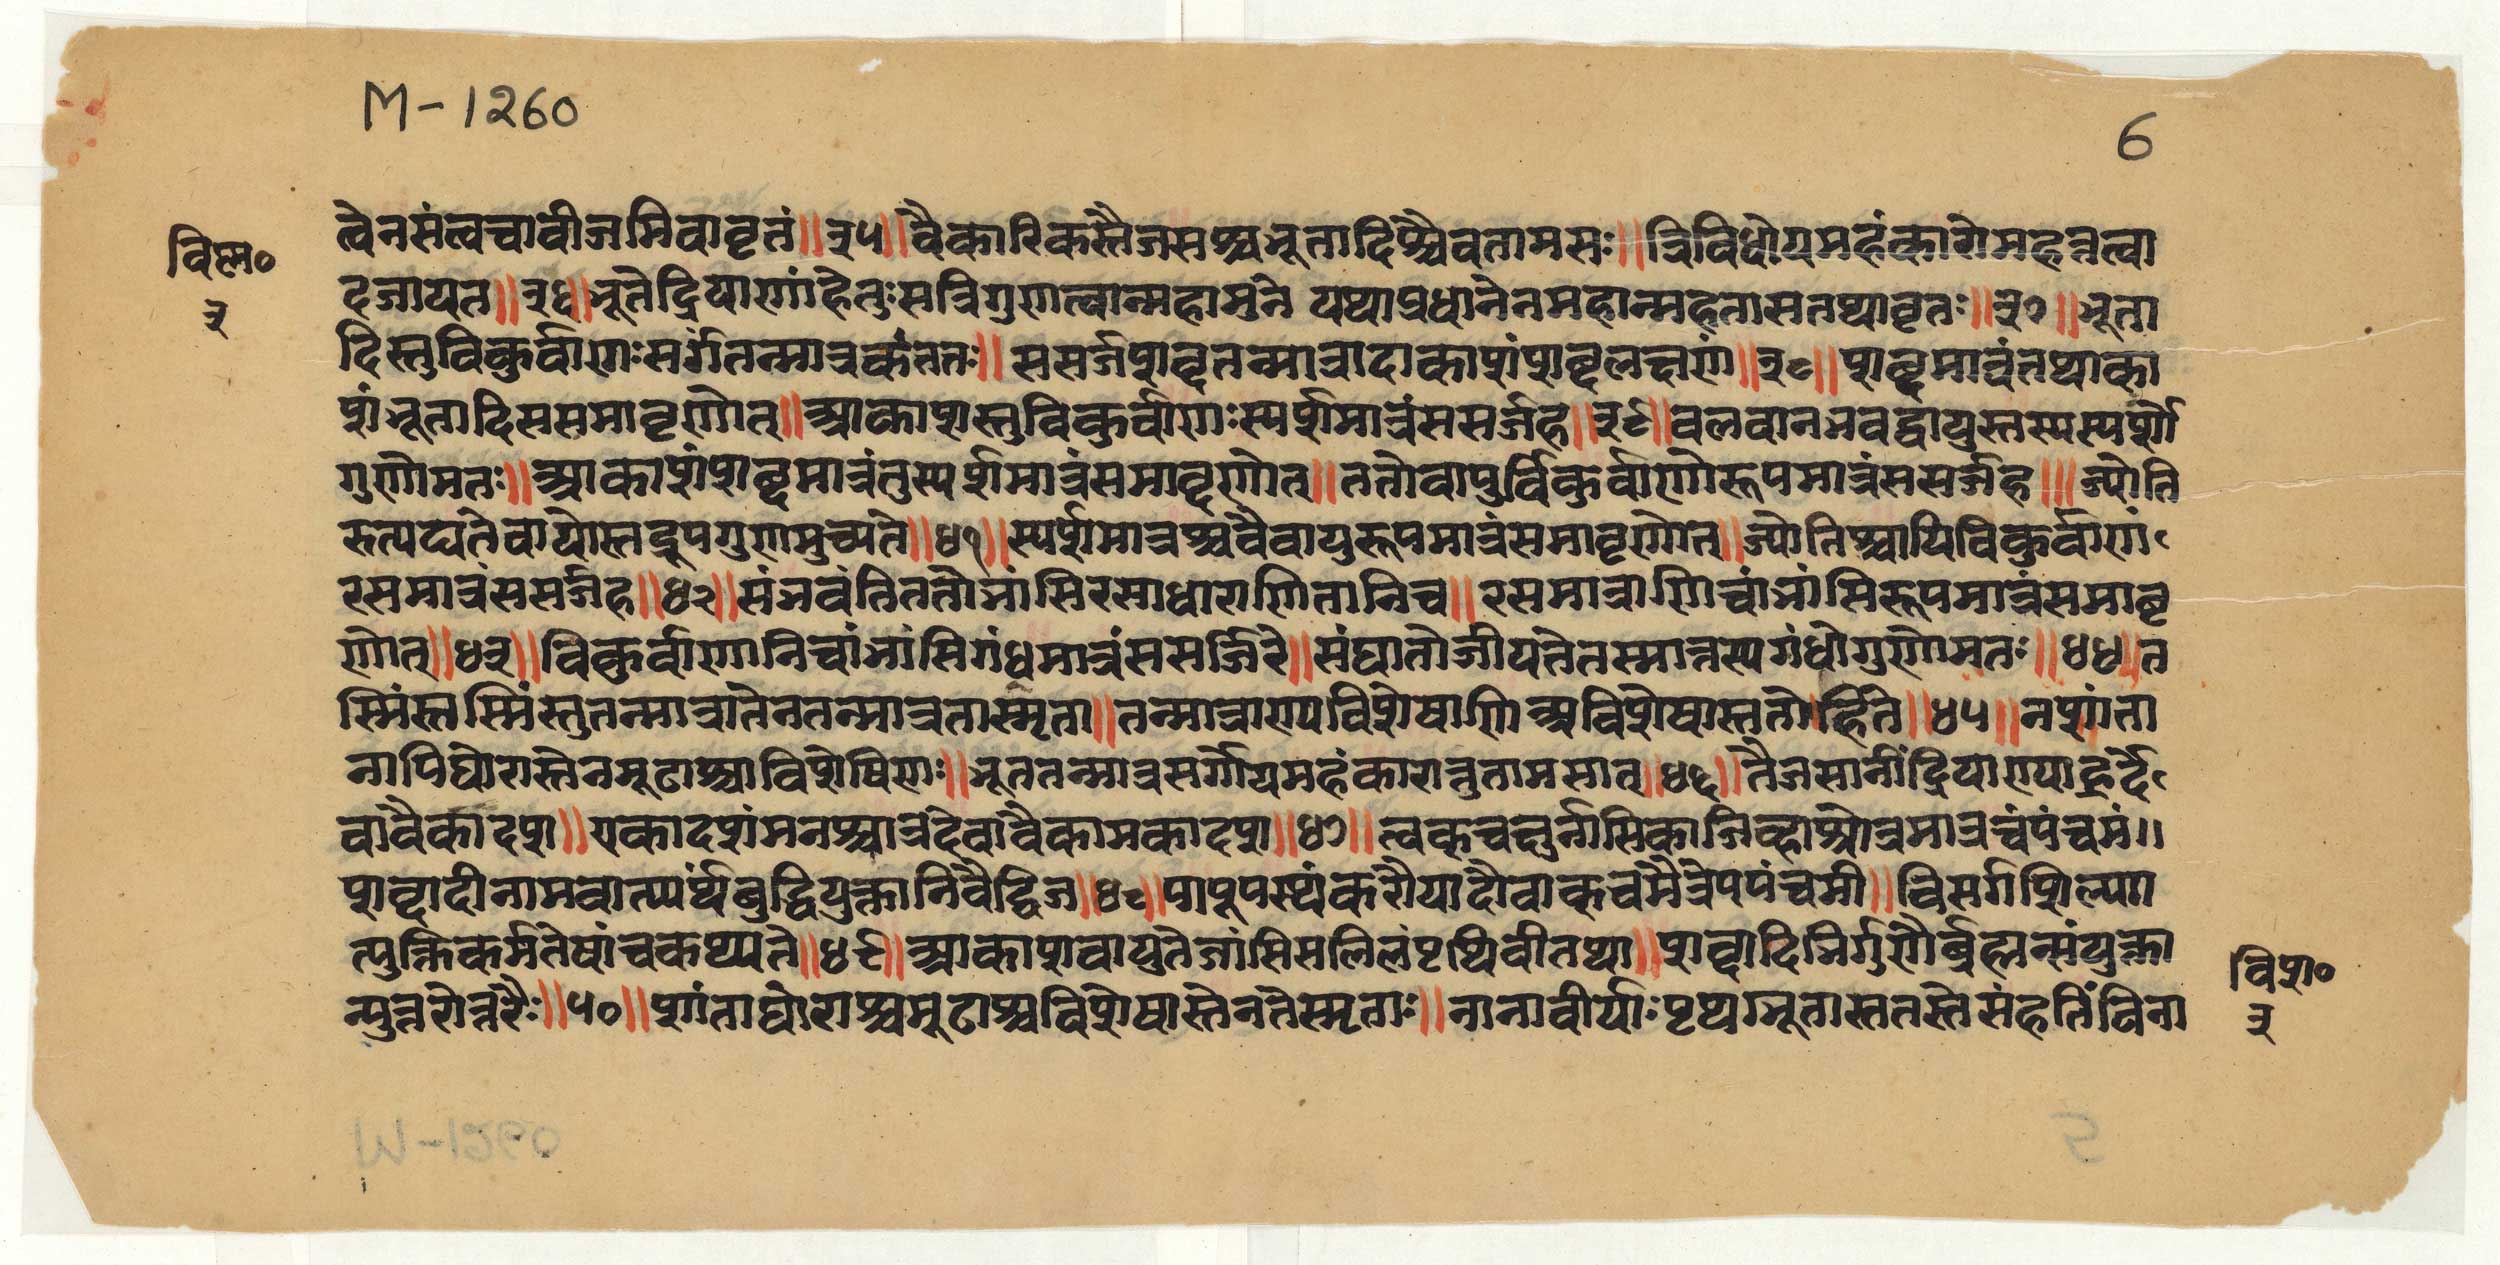 M-1260
6
विष्णु०
३
त्वेनसंत्वचावीजमिवावृतं॥३५॥वैकारिकस्तैजसश्चभूतादिश्चैवतामसः॥त्रिविधोयमहंकारोमहत्तत्वा
दजायत॥३६॥भूतेंद्रियाणांहेतुःसत्रिगुणत्वान्महामुने यथाप्रधानेनमहान्महतासतथावृतः॥३७॥भूता
दिस्तुविकुर्वाणःसर्गंतन्मात्रकंततः॥ससर्जशब्दतन्मात्रादाकाशंशब्दलक्षणं॥३८॥शब्दमात्रंतथाका
शंभूतादिससमावृणोत्॥आकाशस्तुविकुर्वाणःस्पर्शमात्रंससर्जह॥३९॥वलवानभवद्वायुस्तस्यस्पर्शो
गुणोमतः॥आकाशंशब्दमात्रंतुस्पर्शमात्रंसमावृणोत्॥ततोवायुर्विकुर्वाणोरूपमात्रंससर्जह॥ज्योति
रुत्पद्यतेवायोस्तद्रूपगुणमुच्यते॥४१॥स्पर्शमात्रश्चवैवायुरूपमात्रंसमावृणोत्॥ज्योतिश्चापिविकुर्वाणं
रसमात्रंससर्जह॥४२॥संभवंतिततोभांसिरसाधाराणितानिच॥रसमात्राणिचांभांसिरूपमात्रंसमावृ
णोत्॥४३॥विकुर्वाणानिचांभांसिगंधमात्रंससर्जिरे॥संघातोजीयतेतस्मात्तस्यगंधोगुणोमतः॥४४॥त
स्मिंस्तस्मिंस्तुतन्मात्रातेनतन्मात्रतास्मृता॥तन्मात्राण्यविशेषाणिअविशेषास्ततोर्हिते॥४५॥नशांता
नापिघोरास्तेनमूढाश्चाविशेषिणः॥भूततन्मात्रसर्गोयमहंकारात्तुतामसात्॥४६॥तैजसानींद्रियाण्याहुर्दे
वावैकादश॥एकादशंमनश्चात्रदेवावैकामकादश॥४७॥त्वक्चक्षुर्नासिकाजिव्हाश्रोत्रमात्रचंपंचमं॥
शब्दादीनामवात्प्यर्थंबुद्धियुक्तानिवैद्विज॥४८॥पायूपस्थंकरौपादौवाक्चमैत्रेपपंचमी॥विसर्गशिल्पग
त्युक्तिकर्मतेषांचकथ्यते॥४९॥आकाशवायुतेजांसिसलिलंपृथिवीतथा॥शब्दादिभिर्गुणैर्ब्रह्मन्संयुक्ता
न्युत्तरोत्तरैः॥५०॥शांताघोराश्चमूढाश्चविशेषास्तेनतेस्मृताः॥नानावीर्याःपृथग्भूतास्ततस्तेसंहतिंविना
विश०
३